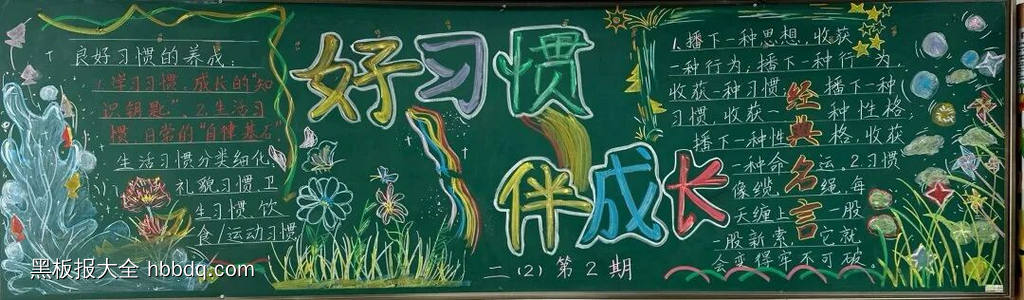 良好习惯的养成:
学习习惯 成长的"知
识钥匙"、2.生活习
惯 日常的"自律基石"
生活习惯分类细化
礼貌习惯、卫
生习惯、饮
食/运动习惯
好习惯
伴成长
二(2)第2期
1.播下一种思想,收获
一种行为,播下一种行为,
收获一种习惯,播下一种
习惯,收获一种性格
播下一种性格,收获
一种命运。2.习惯
像缆绳,每
天缠上一股
股新索,它就
会变得牢不可破
经典名言
黑板报大全 hbbdq.com